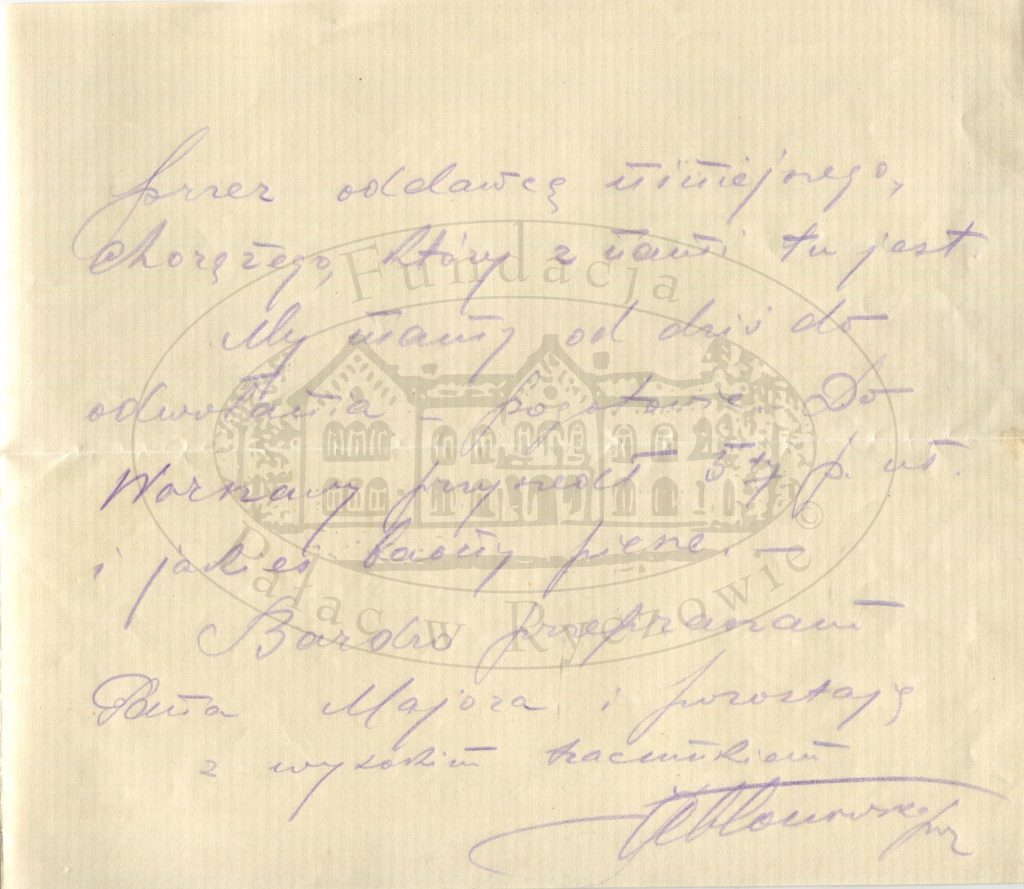 przez oddawcę niniejszego,
chorążego, który z nami tu jest.
My mamy od dziś do
odwołania – pogotowie. Do
Warszawy przyszedł 57 p. uł.
i jakieś baony piesze. –
Bardzo przepraszam
Pana Majora i pozostaję
z wysokim szacunkiem
Jabłonowski
Fundacja
Pałac w Rynkowie ©